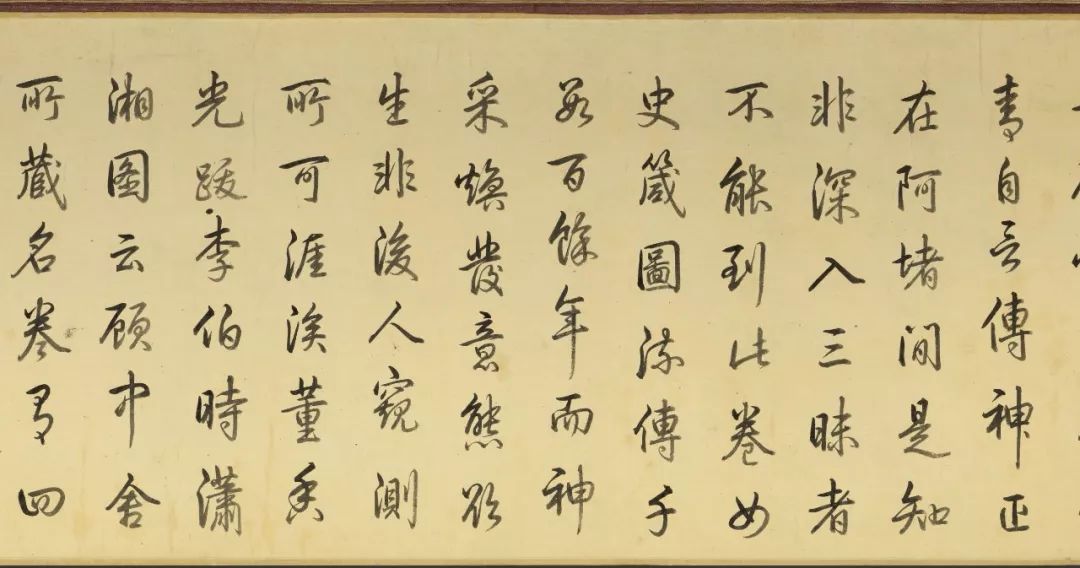 青自言傳神正
在阿堵間是知
非深入三昧者
不能到此卷女
史箴圖流傳千
數百餘年而神
采煥發意態欲
生非後人窺測
所可涯涘董香
光跋李伯時瀟
湘圖云顧中舍
所藏名卷有四